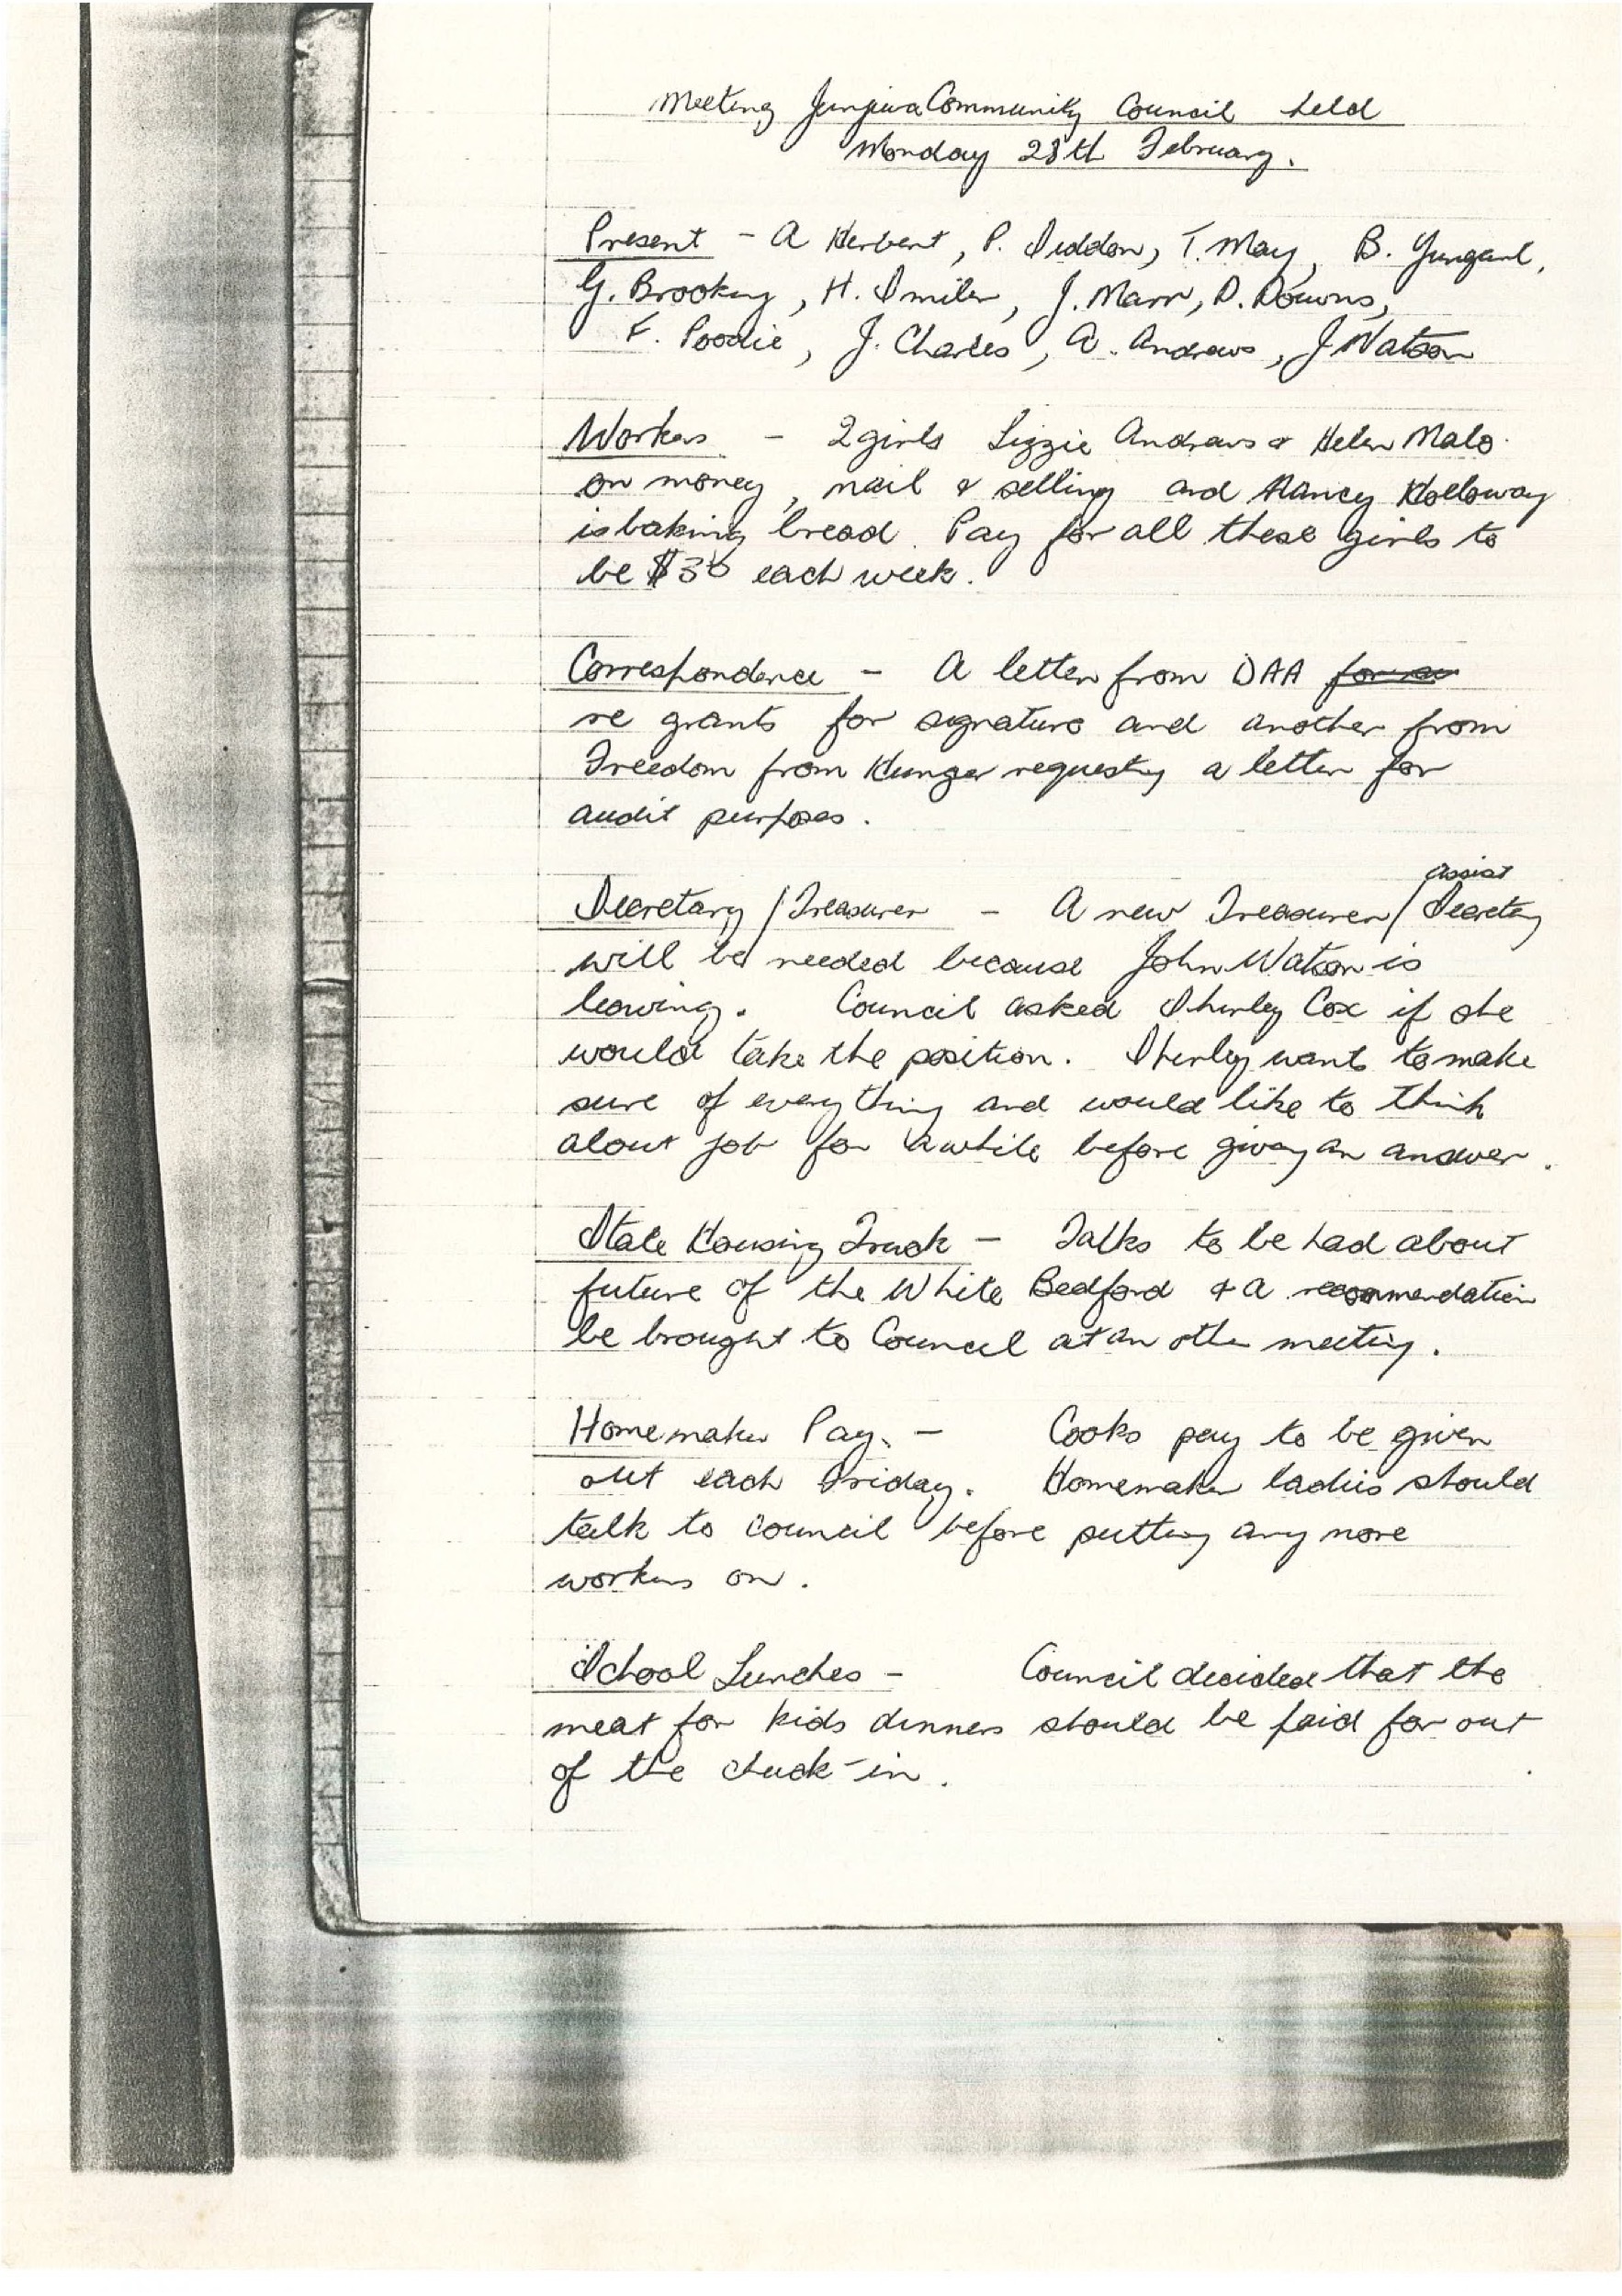 Meeting Junjuwa Community Council held
Monday 28th February.
Present - A Herbert, P. Siddon, T. May, B. Yungarl,
G. Brooking, H. Smiler, J. Marr, D. Downs,
F. Poodie, J. Charles, A. Andrews, J Watson
Workers - 2 girls Lizzie Andrews & Helen Malo
on money, mail & selling and Nancy Holloway
is baking bread. Pay for all these girls to
be $30 each week.
Correspondence - A letter from DAA
re grants for signature and another from
Freedom from Hunger requesting a letter for
audit purposes.
assist
Secretary / Treasurer - A new Treasurer / Secretary
will be needed because John Watson is
leaving. Council asked Shirley Cox if she
would take the position. Shirley want to make
sure of everything and would like to think
about job for awhile before giving an answer.
State Housing Truck - Talks to be had about
future of the White Bedford & a recommendation
be brought to Council at an other meeting.
Homemaker Pay. - Cooks pay to be given
out each Friday. Homemaker ladies should
talk to council before putting any more
workers on.
School Lunches - Council decided that the
meat for kids dinners should be paid for out
of the chuck-in.